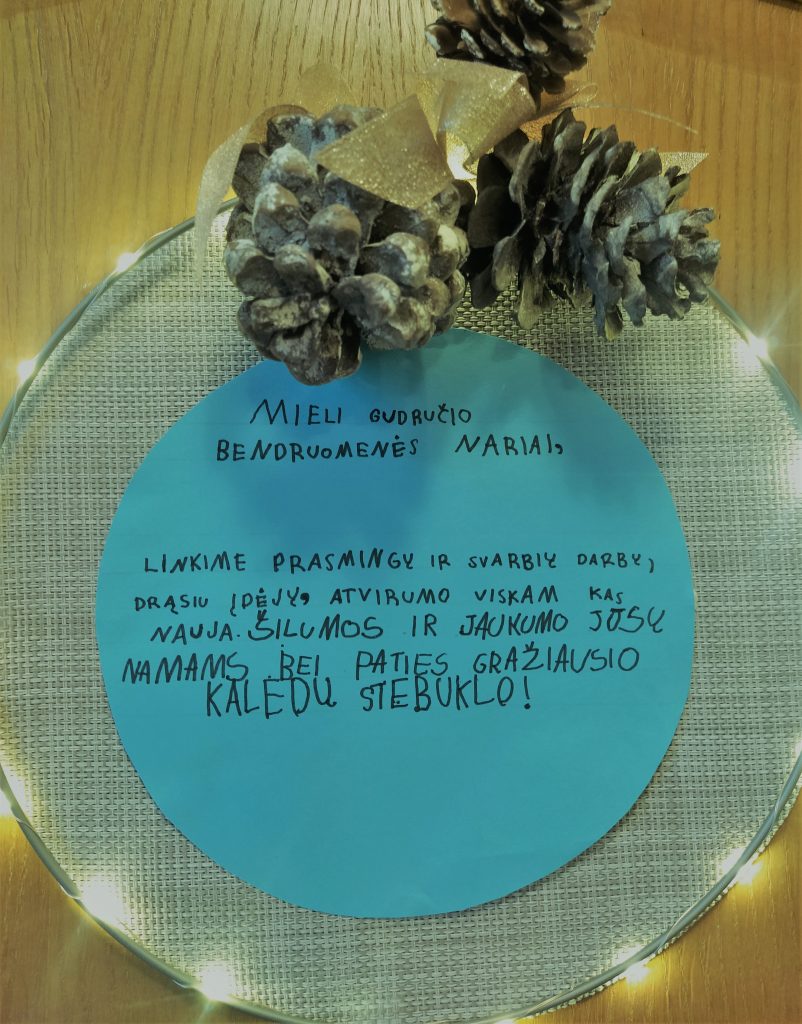 MIELI GUDRUČIO
BENDRUOMENĖS NARIAI,
LINKIME PRASMINGŲ IR SVARBIŲ DARBŲ,
DRĄSIU ĮDĖJŲ, ATVIRUMO VISKAM KAS
NAUJA. ŠILUMOS IR JAUKUMO JŪSŲ
NAMAMS BEI PATIES GRAŽIAUSIO
KALĖDŲ STEBUKLO!